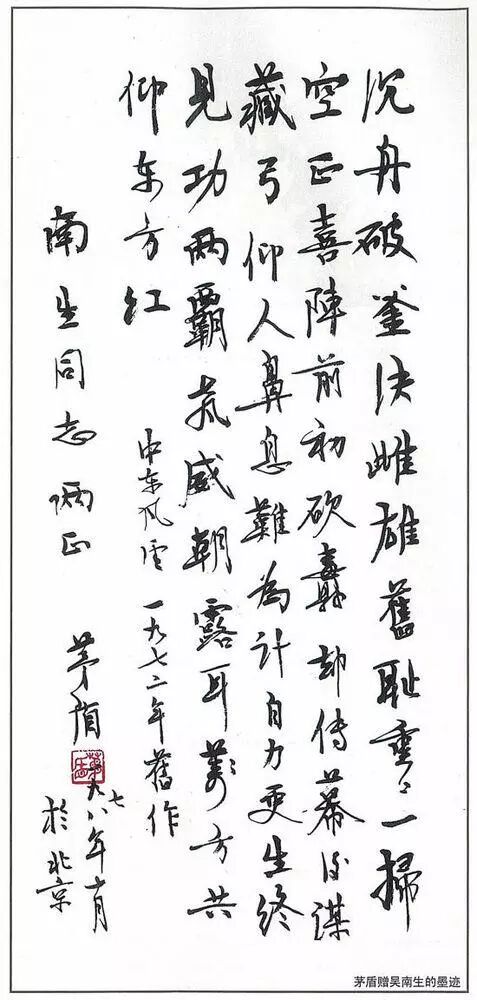 沉舟破釜决雌雄舊耻重〻一掃
空正喜陣前初砍纛却传幕后谋
藏弓仰人鼻息難為计自力更生终
見功兩霸威朝露耳萬方共
仰东方红
中东风雲 一九七二年舊作
南生同志哂正
茅盾
一九七八年十月
於北京
茅盾赠吴南生的墨迹